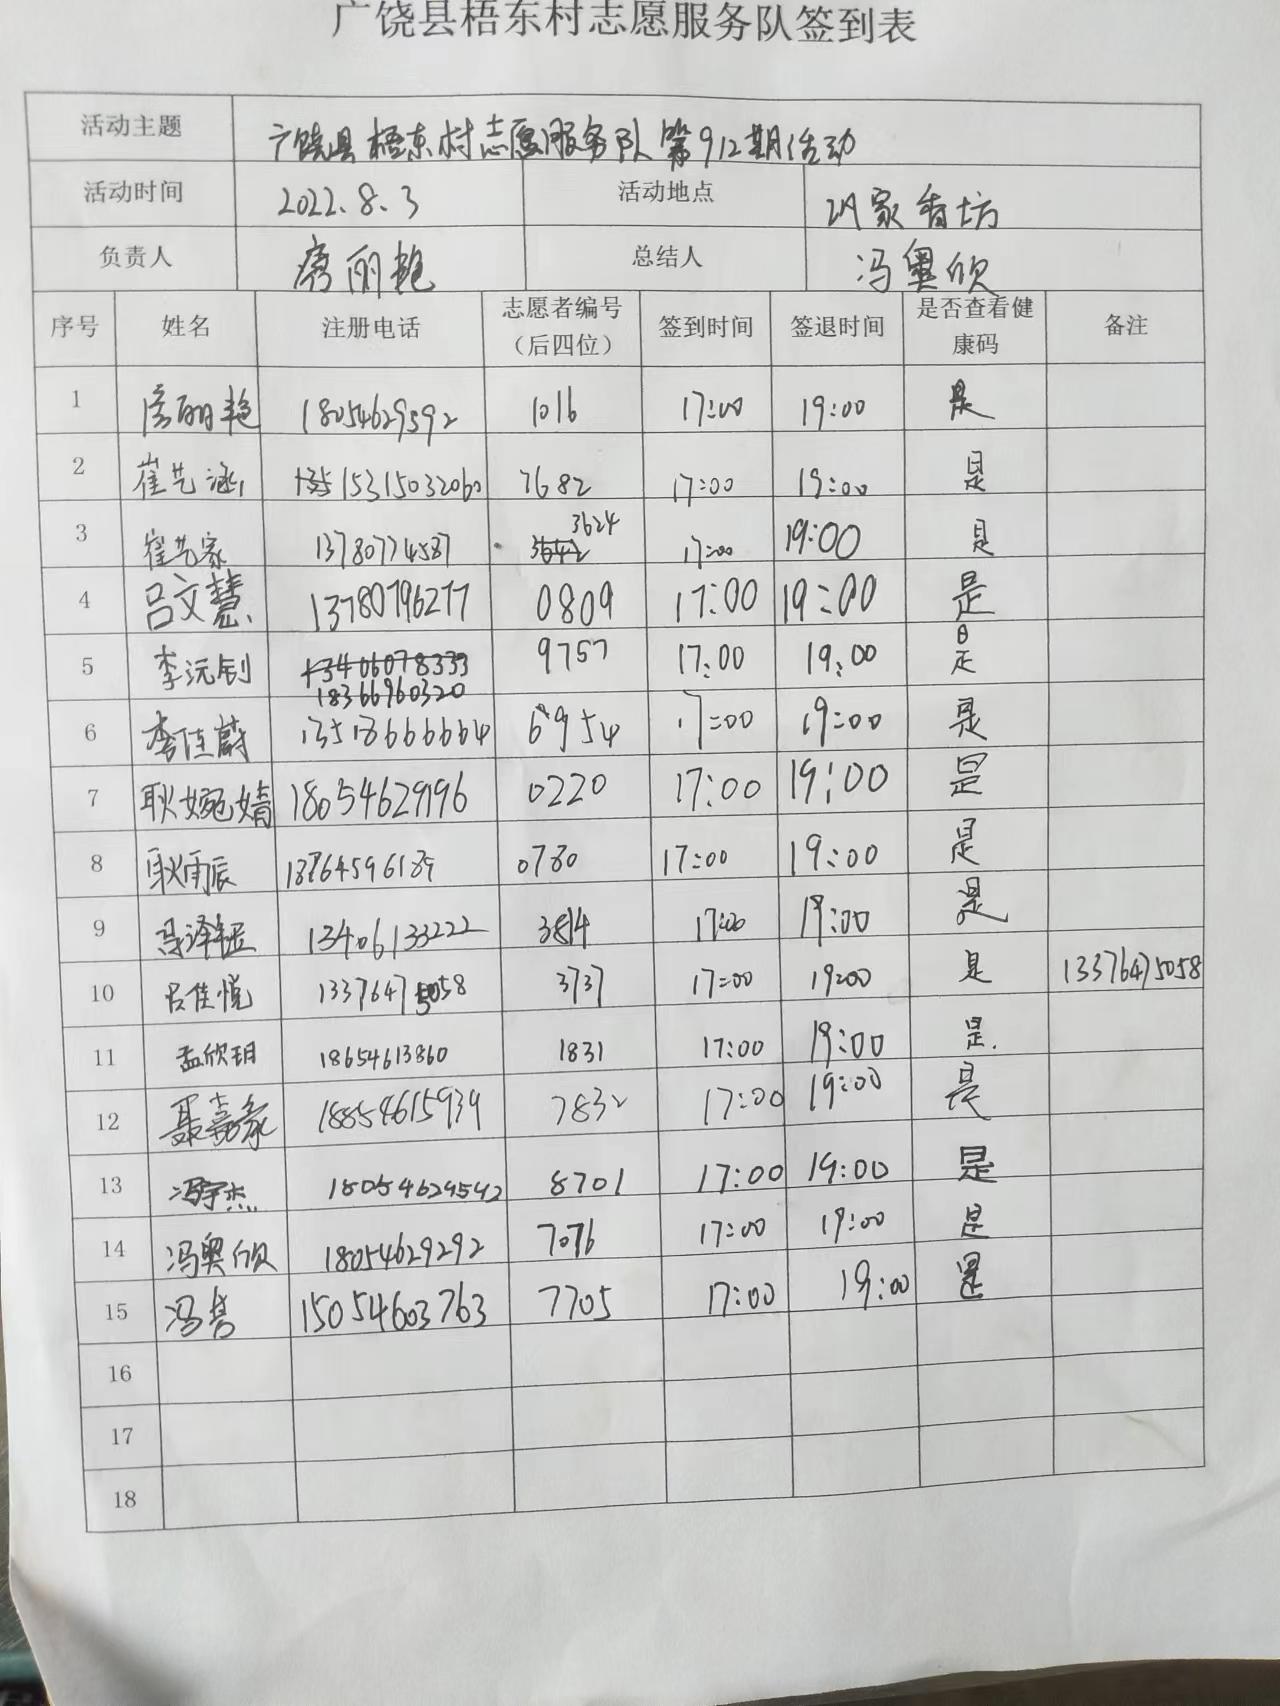 广饶县梧东村志愿服务队签到表
活动主题 广饶县梧东村志愿服务队第912期活动
活动时间 2022.8.3 活动地点 家香坊
负责人 唐丽艳 总结人 冯奥欣
序号 姓名 注册电话 志愿者编号（后四位） 签到时间 签退时间 是否查看健康码 备注
1 唐丽艳 18054629592 1016 17:00 19:00 是
2 崔艺涵 15315032060 7682 17:00 19:00 是
3 崔艺家 13780774587 3624 17:00 19:00 是
4 吕文慧 13780796277 0809 17:00 19:00 是
5 李沅钊 13406078333 18366960320 9757 17:00 19:00 是
6 李佳蔚 13518666664 6954 17:00 19:00 是
7 耿婉婧 18054629196 0220 17:00 19:00 是
8 耿雨辰 0780 17:00 19:00 是
9 13406133222 3814 17:00 19:00 是
10 吕佳悦 13376475058 3737 17:00 19:00 是 13376475058
11 孟欣玥 18654613860 1831 17:00 19:00 是
12 聂嘉豪 18854615939 7832 17:00 19:00 是
13 冯宇杰 18054629592 8701 17:00 19:00 是
14 冯奥欣 18054629292 7076 17:00 19:00 是
15 冯 15054603763 7705 17:00 19:00 是
16
17
18